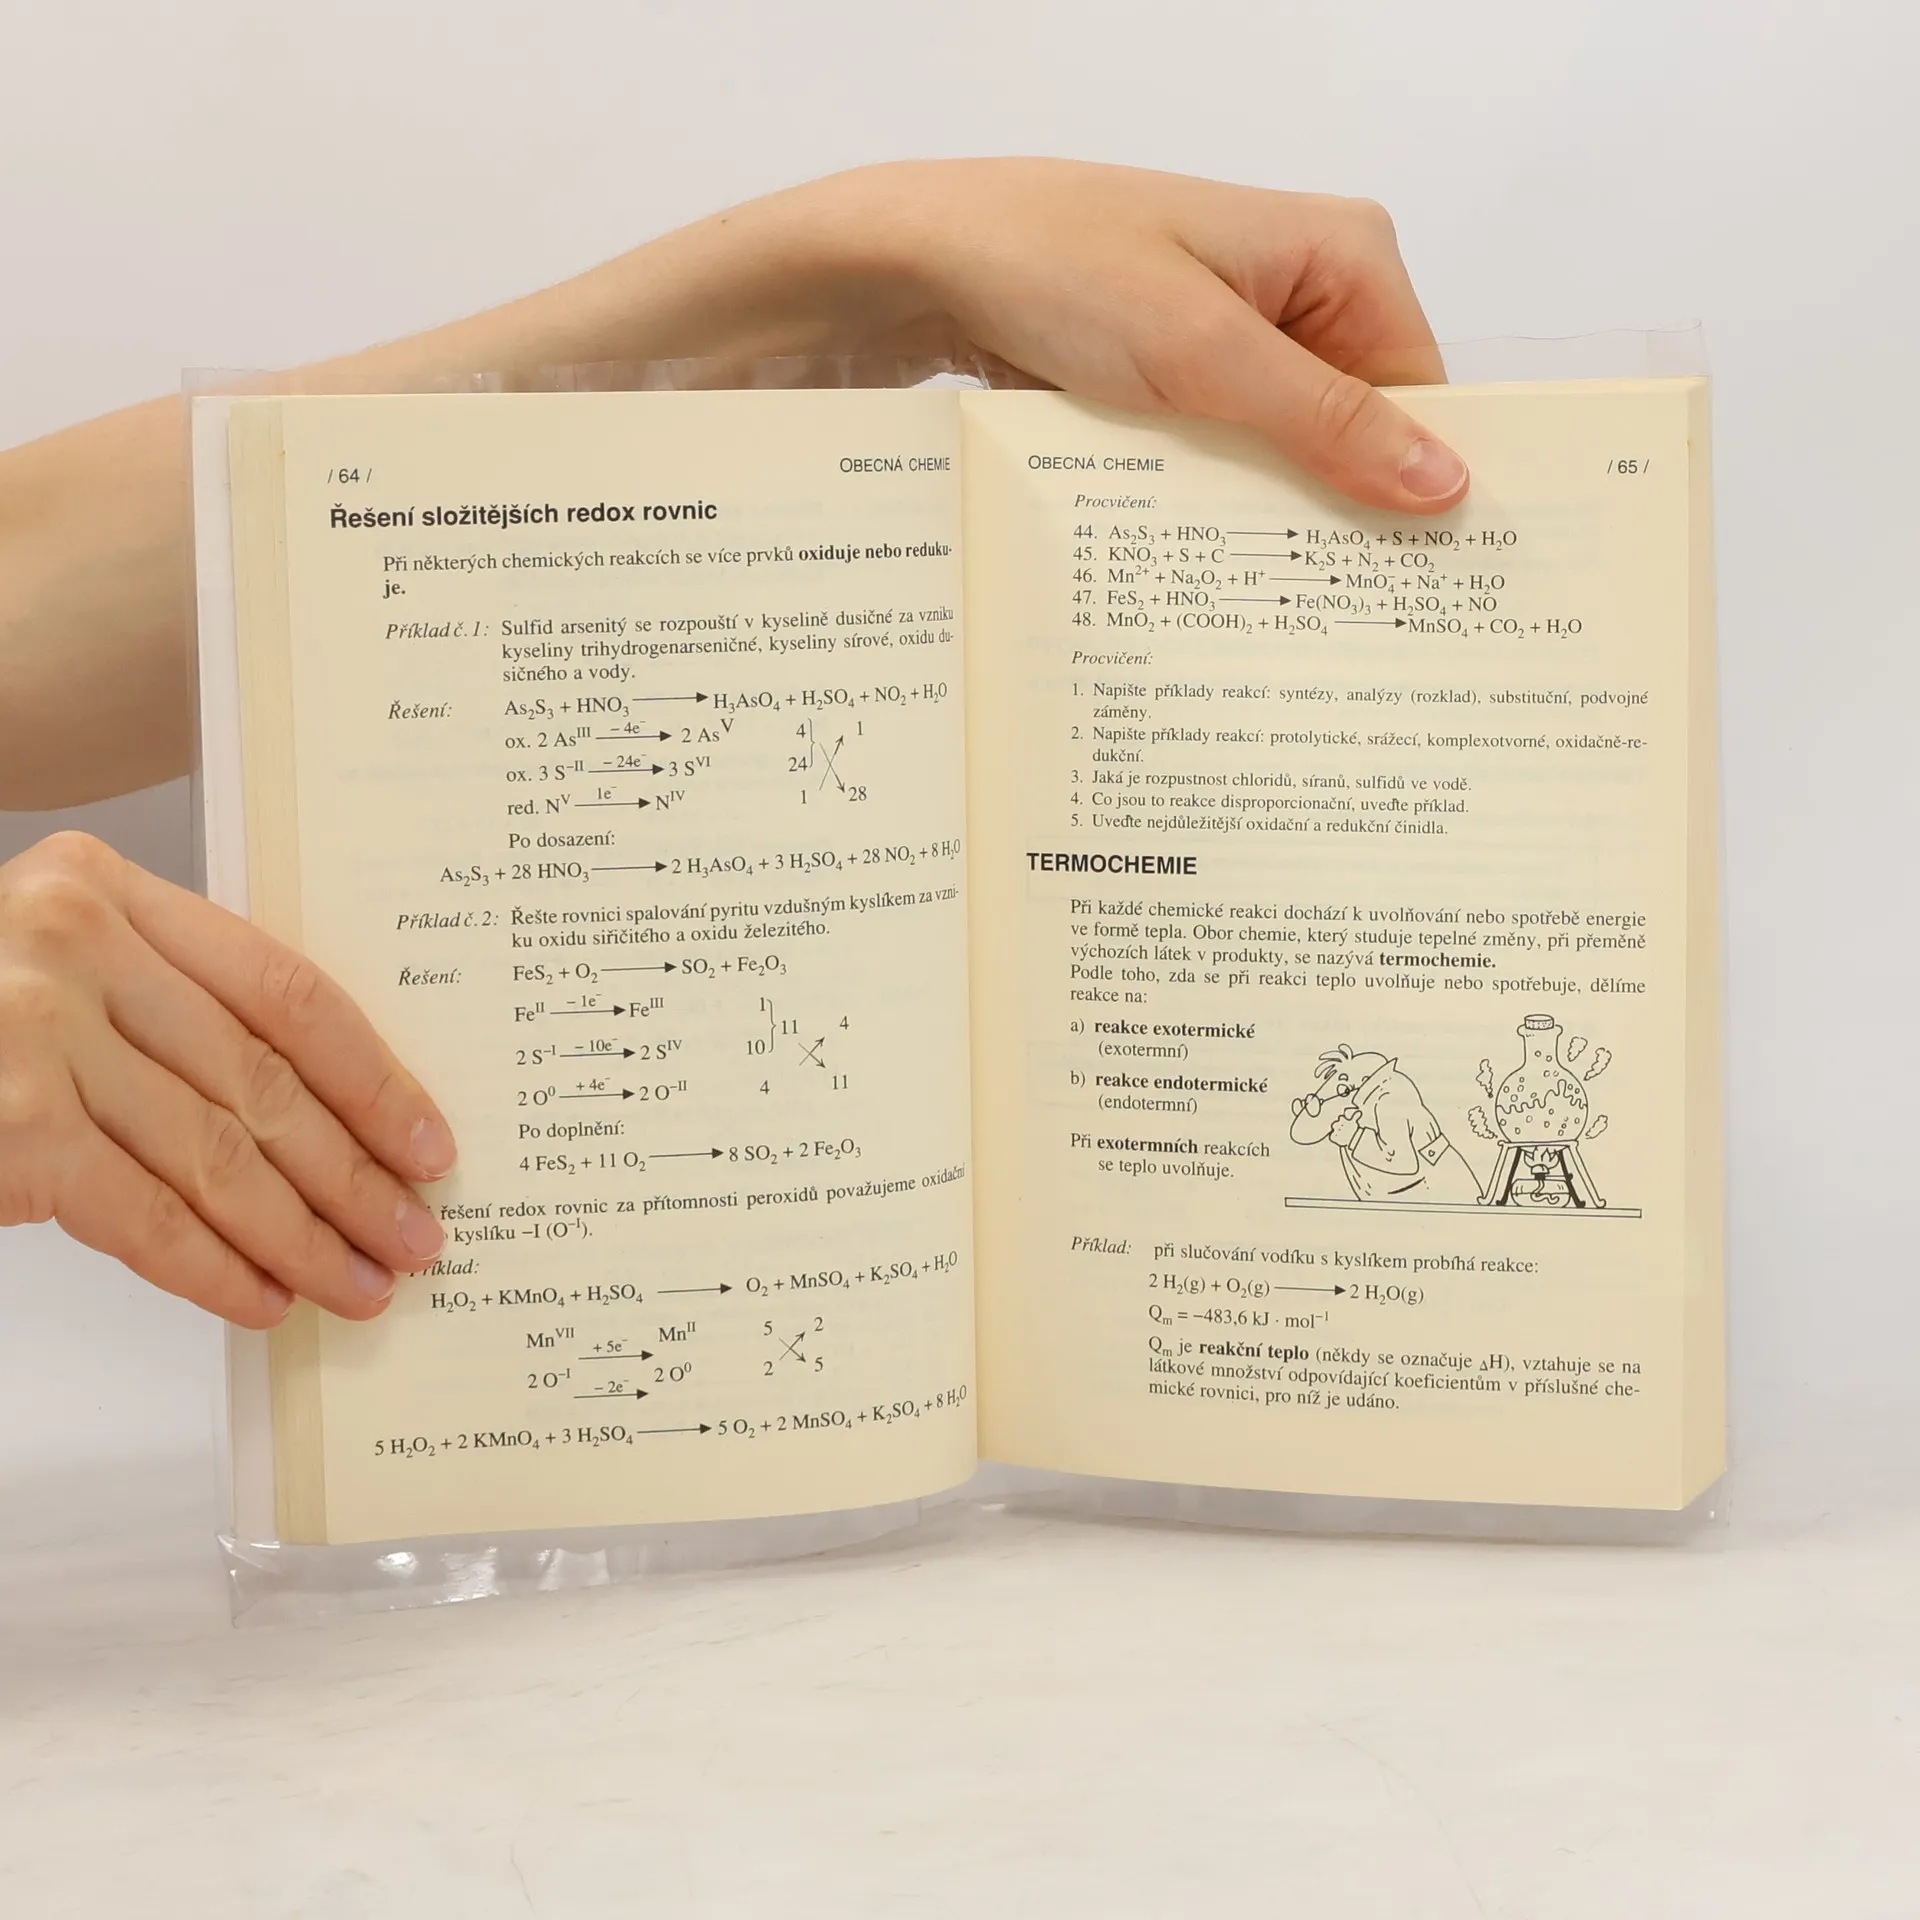 / 64 /
OBECNÁ CHEMIE
Řešení složitějších redox rovnic
Při některých chemických reakcích se více prvků oxiduje nebo reduku-
je.
Příklad č. 1: Sulfid arsenitý se rozpouští v kyselině dusičné za vzniku
kyseliny trihydrogenarseničné, kyseliny sírové, oxidu du-
sičného a vody.
Řešení: As₂S₃ + HNO₃ ⟶ H₃AsO₄ + H₂SO₄ + NO₂ + H₂O
ox. 2 Asᴵᴵᴵ −4e⁻ ⟶ 2 Asⱽ 4 1
ox. 3 S⁻ᴵᴵ −24e⁻ ⟶ 3 Sⱽᴵ 24
red. Nⱽ 1e⁻ ⟶ Nᴵⱽ 1 28
Po dosazení:
As₂S₃ + 28 HNO₃ ⟶ 2 H₃AsO₄ + 3 H₂SO₄ + 28 NO₂ + 8 H₂O
Příklad č. 2: Řešte rovnici spalování pyritu vzdušným kyslíkem za vzni-
ku oxidu siřičitého a oxidu železitého.
Řešení: FeS₂ + O₂ ⟶ SO₂ + Fe₂O₃
Feᴵᴵ −1e⁻ ⟶ Feᴵᴵᴵ 1 11 4
2 S⁻ᴵ −10e⁻ ⟶ 2 Sᴵⱽ 10
2 O⁰ +4e⁻ ⟶ 2 O⁻ᴵᴵ 4 11
Po doplnění:
4 FeS₂ + 11 O₂ ⟶ 8 SO₂ + 2 Fe₂O₃
řešení redox rovnic za přítomnosti peroxidů považujeme oxidační
kyslíku −I (O⁻ᴵ).
říklad:
H₂O₂ + KMnO₄ + H₂SO₄ ⟶ O₂ + MnSO₄ + K₂SO₄ + H₂O
Mnⱽᴵᴵ +5e⁻ ⟶ Mnᴵᴵ 5 2
2 O⁻ᴵ −2e⁻ ⟶ 2 O⁰ 2 5
5 H₂O₂ + 2 KMnO₄ + 3 H₂SO₄ ⟶ 5 O₂ + 2 MnSO₄ + K₂SO₄ + 8 H₂O
OBECNÁ CHEMIE
/ 65 /
Procvičení:
44. As₂S₃ + HNO₃ ⟶ H₃AsO₄ + S + NO₂ + H₂O
45. KNO₃ + S + C ⟶ K₂S + N₂ + CO₂
46. Mn²⁺ + Na₂O₂ + H⁺ ⟶ MnO₄⁻ + Na⁺ + H₂O
47. FeS₂ + HNO₃ ⟶ Fe(NO₃)₃ + H₂SO₄ + NO
48. MnO₂ + (COOH)₂ + H₂SO₄ ⟶ MnSO₄ + CO₂ + H₂O
Procvičení:
1. Napište příklady reakcí: syntézy, analýzy (rozklad), substituční, podvojné
záměny.
2. Napište příklady reakcí: protolytické, srážecí, komplexotvorné, oxidačně-re-
dukční.
3. Jaká je rozpustnost chloridů, síranů, sulfidů ve vodě.
4. Co jsou to reakce disproporcionační, uveďte příklad.
5. Uveďte nejdůležitější oxidační a redukční činidla.
TERMOCHEMIE
Při každé chemické reakci dochází k uvolňování nebo spotřebě energie
ve formě tepla. Obor chemie, který studuje tepelné změny, při přeměně
výchozích látek v produkty, se nazývá termochemie.
Podle toho, zda se při reakci teplo uvolňuje nebo spotřebuje, dělíme
reakce na:
a) reakce exotermické
(exotermní)
b) reakce endotermické
(endotermní)
Při exotermních reakcích
se teplo uvolňuje.
Příklad: při slučování vodíku s kyslíkem probíhá reakce:
2 H₂(g) + O₂(g) ⟶ 2 H₂O(g)
Qₘ = −483,6 kJ · mol⁻¹
Qₘ je reakční teplo (někdy se označuje ΔH), vztahuje se na
látkové množství odpovídající koeficientům v příslušné che-
mické rovnici, pro níž je udáno.